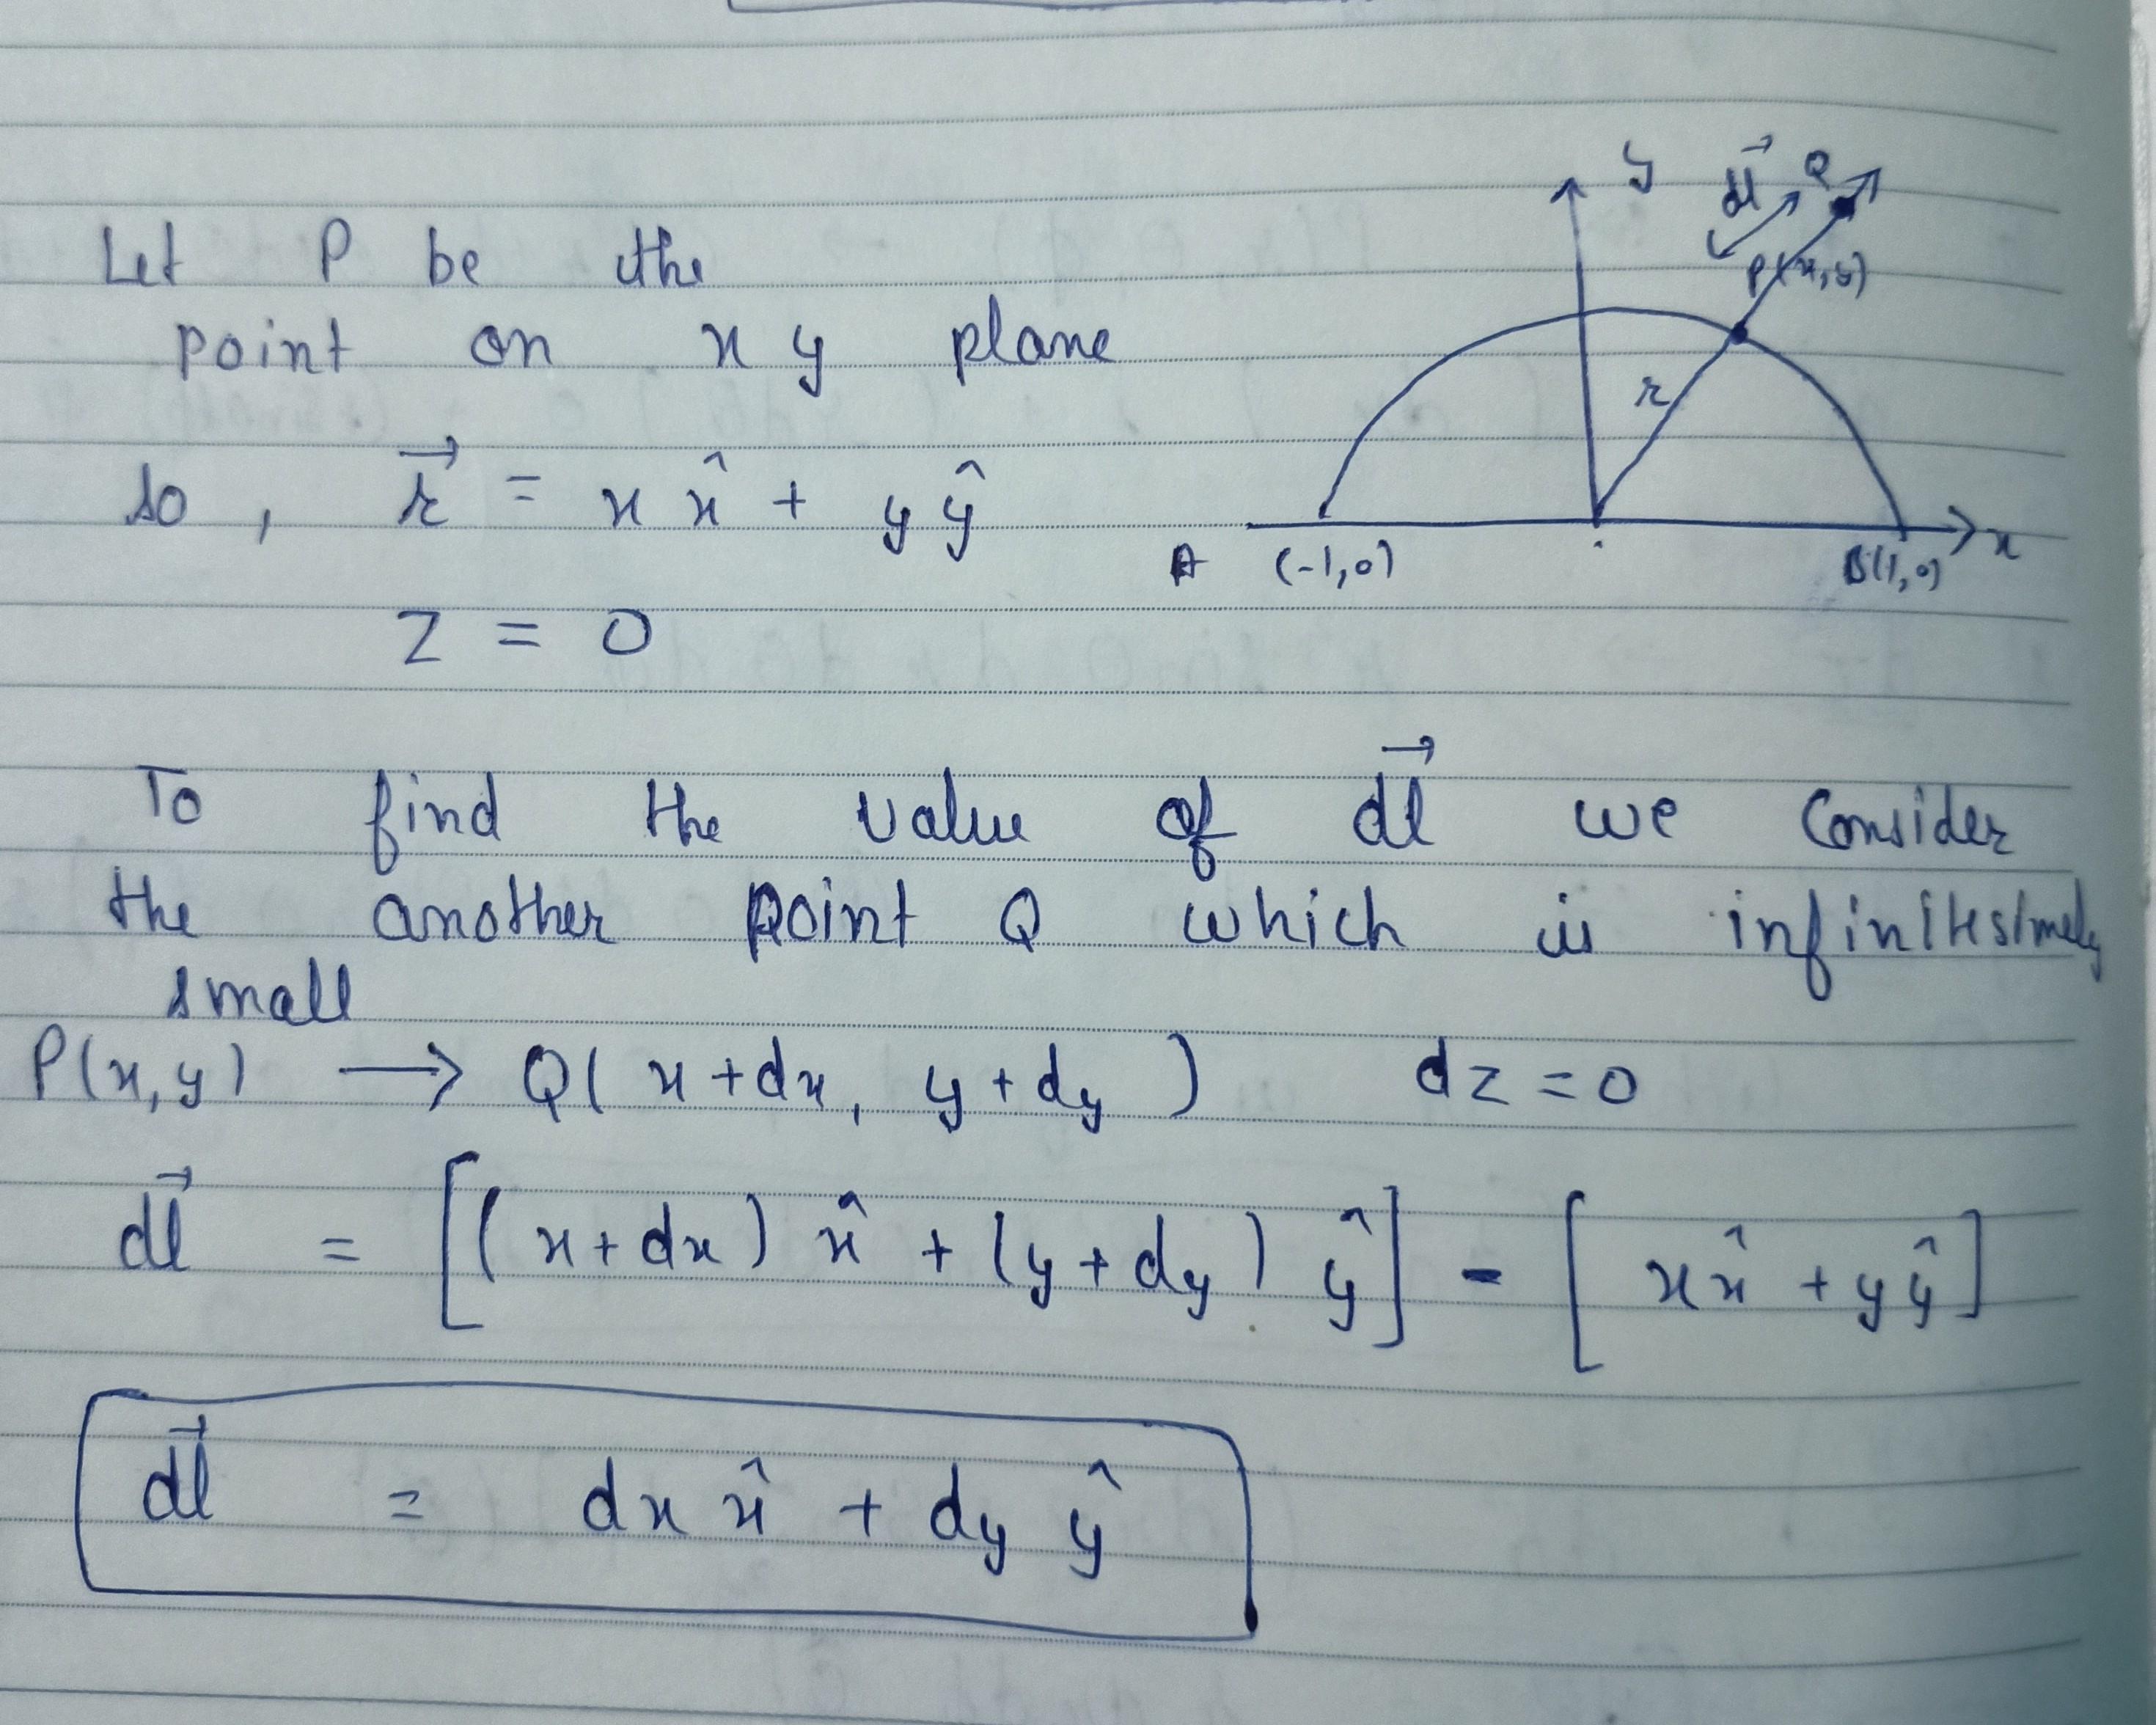 Let P be the
point on x y plane
so, r⃗ = x x̂ + y ŷ
z = 0
y
dl⃗ Q
P(x,y)
r
A (-1,0) B(1,0) x
To find the value of dl⃗ we consider
the another point Q which is infinitesimaly
small
P(x,y) → Q( x+dx, y+dy ) dz = 0
dl⃗ = [(x+dx) x̂ + (y+dy) ŷ] - [x x̂ + y ŷ]
dl⃗ = dx x̂ + dy ŷ